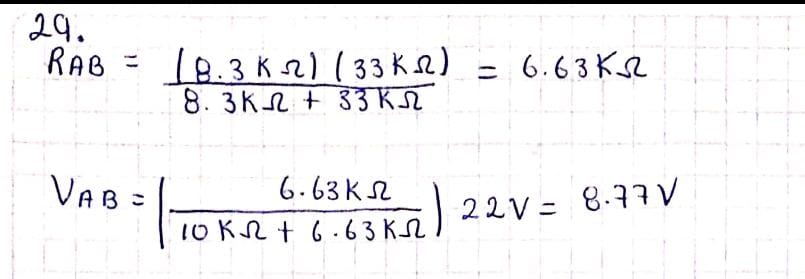 29.
RAB = (8.3 KΩ) (33KΩ) = 6.63KΩ
8.3KΩ + 33KΩ
VAB = (6.63KΩ / 10KΩ + 6.63KΩ) 22V = 8.77V